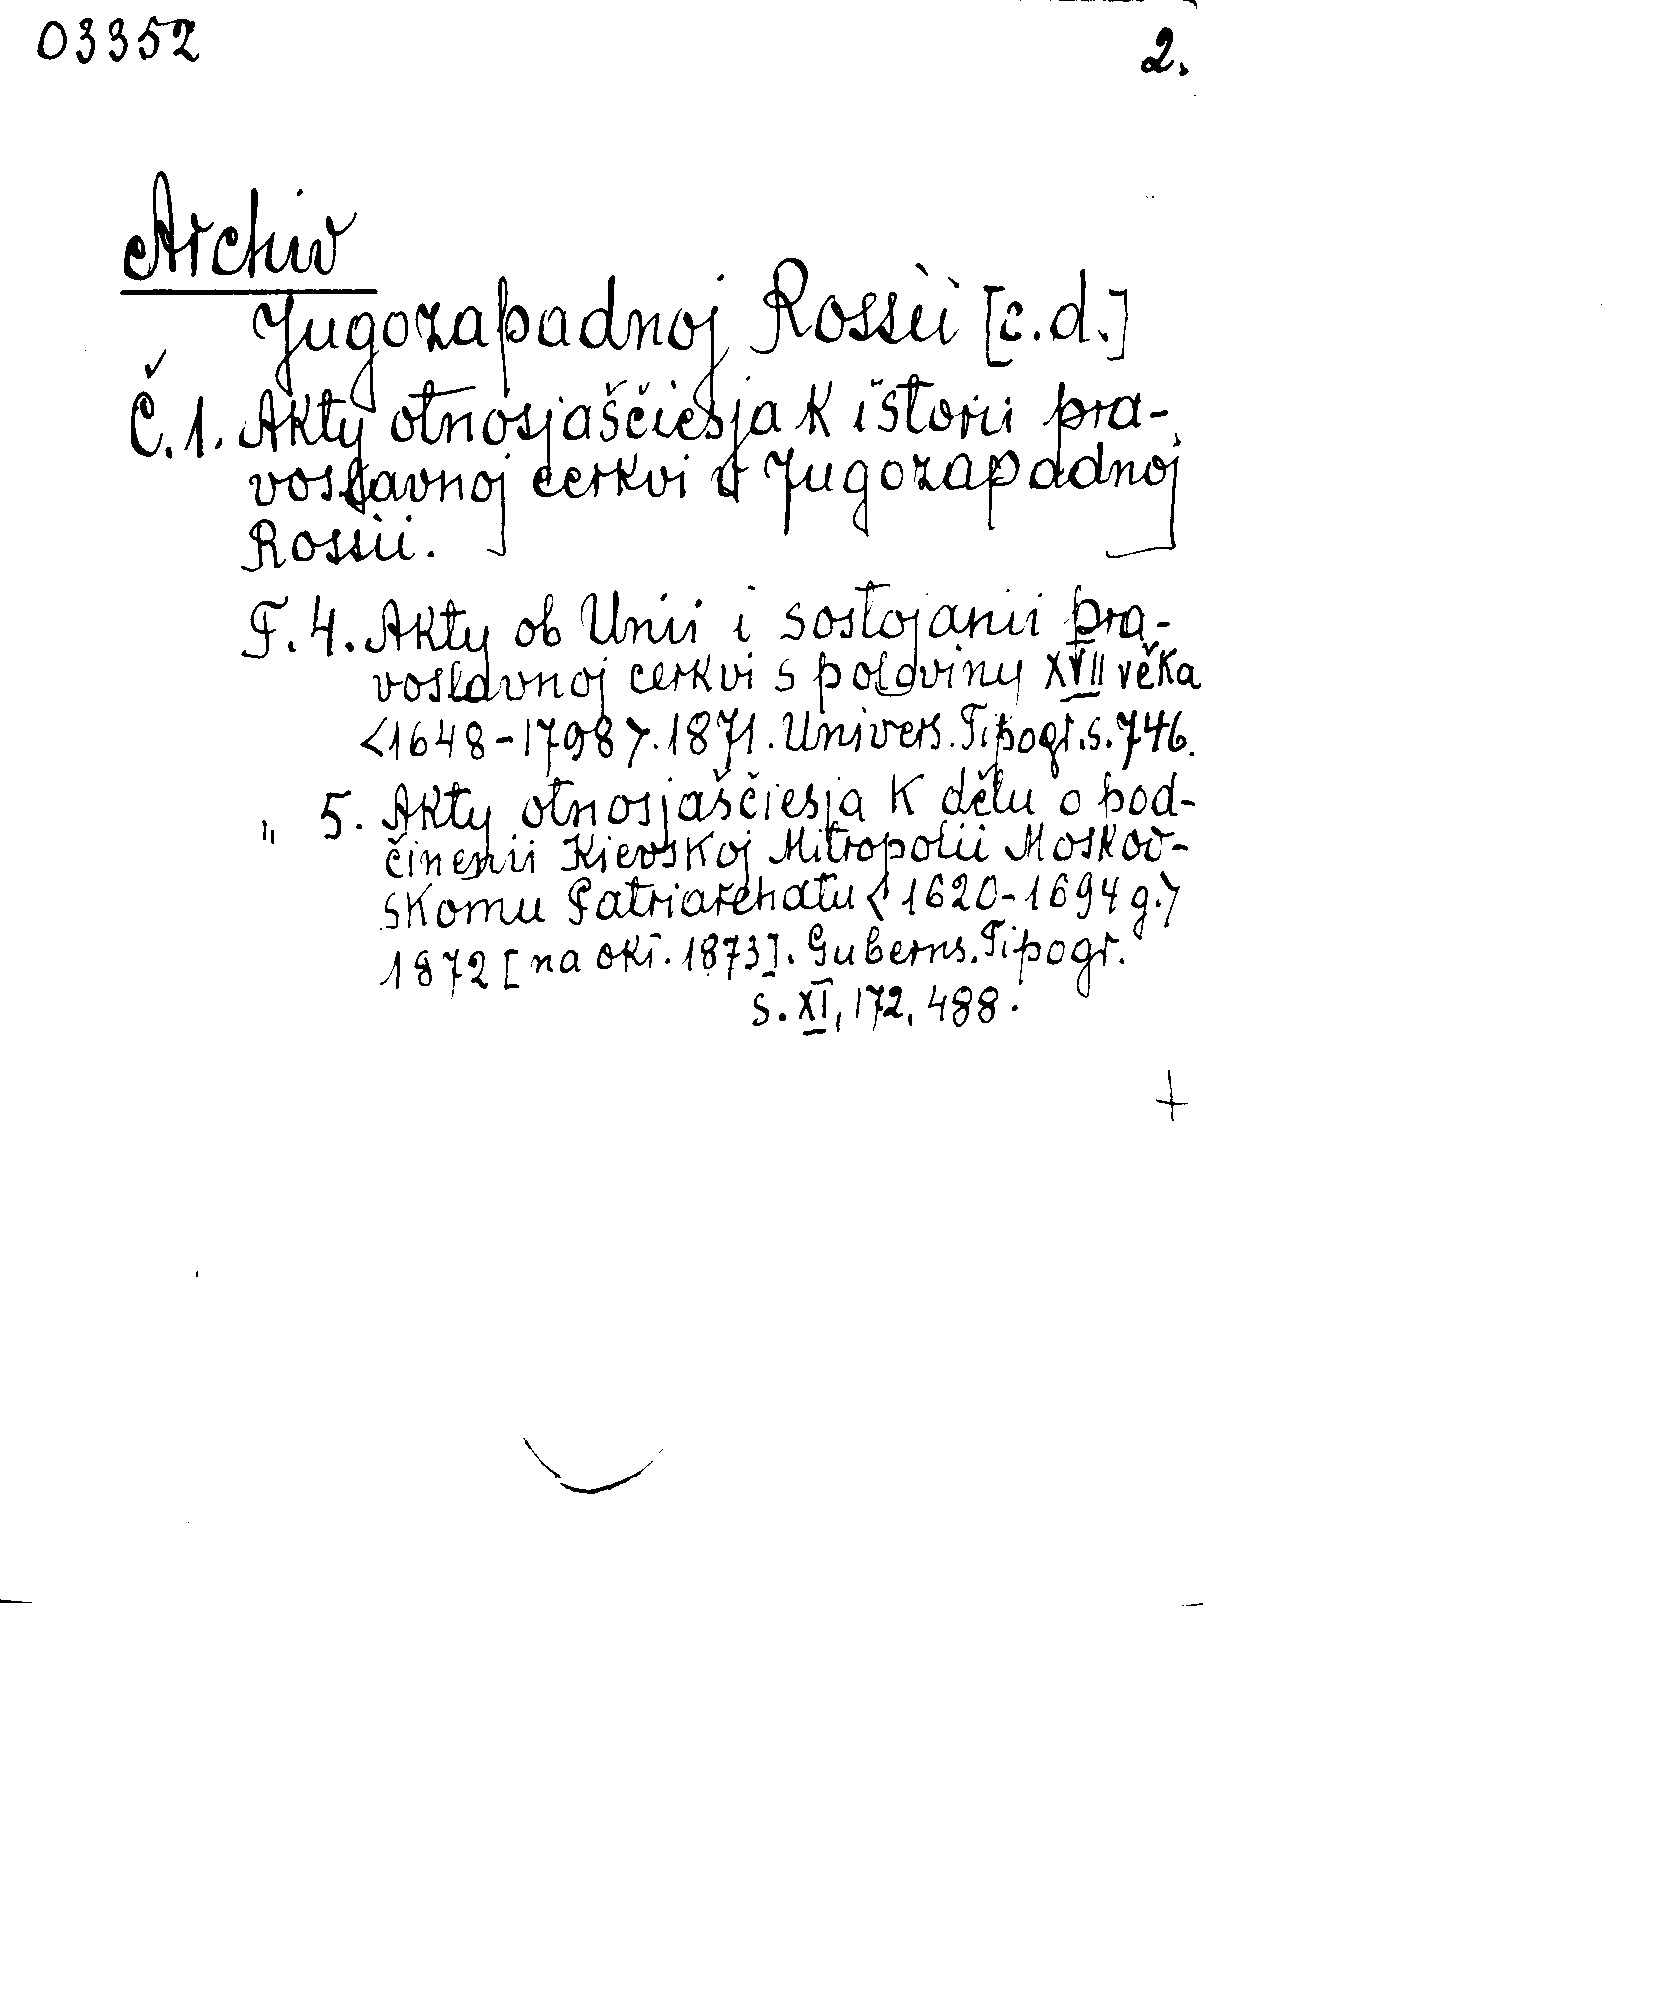 03352
2.
Archiv
Jugozapadnoj Rossii [c.d.]
Č.1. Akty otnosjaščiesja k istorii pra-
voslavnoj cerkvi v Jugozapadnoj
Rossii.
T.4. Akty ob Unii i sostojanii pra-
voslavnoj cerkvi s poloviny XVII věka
<1648-1798>. 1871. Univers. Tipogr. s. 746.
" 5. Akty otnosjaščiesja k dělu o pod-
činenii Kievskoj Mitropolii Moskov-
skomu Patriarchatu <1620-1694 g.>
1872 [na okł. 1873]. Guberns. Tipogr.
s. XI, 172, 488.
+